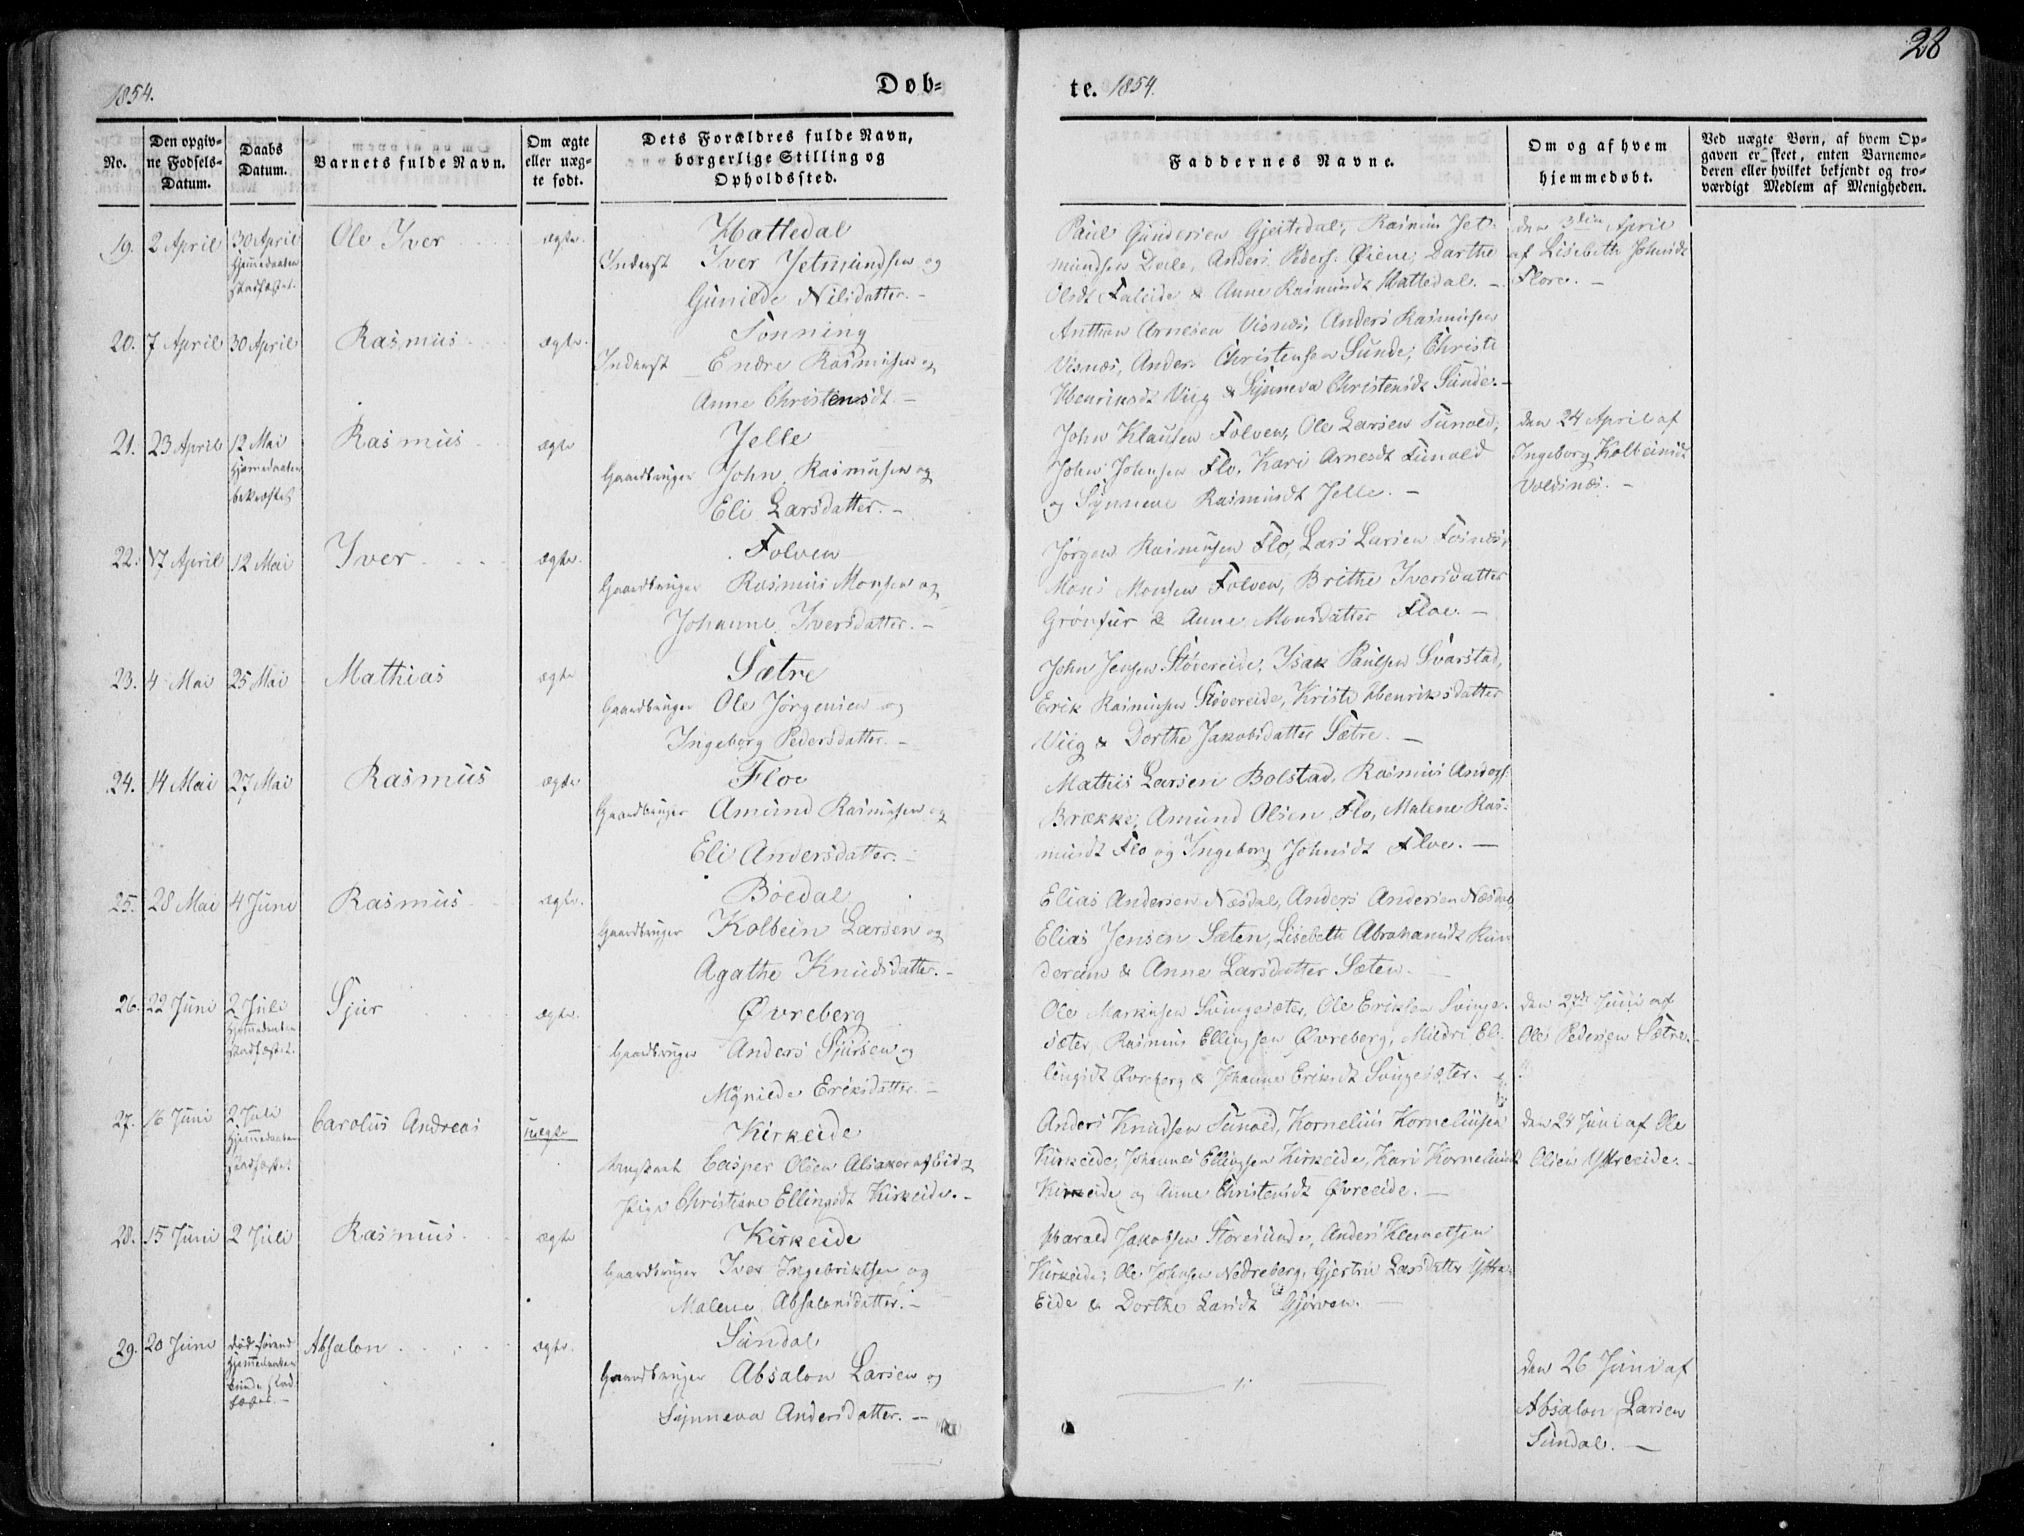 28
1854. Døb-
te. 1854.
No.
Den opgiv-
ne Fødsels-
Datum.
Daabs
Datum.
Barnets fulde Navn.
Om ægte
eller uæg-
te født.
Dets Forældres fulde Navn,
borgerlige Stilling og
Opholdssted.
Faddernes Navne.
Om og af hvem
hjemmedøbt.
Ved uægte Børn, af hvem Op-
gaven er skeet, enten Barnemo-
deren eller hvilket bekjendt og tro-
værdigt Medlem af Menigheden.
19. 2 April 30 April Ole Iver ægte. Hattedal
Hjemmedaaben
stadfæstet.
Inderst Iver Jetmundsen og
Gunilde Nilsdatter. -
Paul Gundersen Gjeitedal, Rasmus Jet-
mundsen Dale, Anders Peders. Øiene, Dorthe
Olsdt Faleide & Anne Rasmusdt Hattedal. -
den 3die April
af Lisebeth Johnsdt
Flore. -
20. 7 April 30 April Rasmus ægte. Tonning
Inderst Endre Rasmusen og
Anne Christensdt -
Anthon Arnesen Visnes, Anders Rasmusen
Visnæs, Anders Christensen Sunde, Christi
Henriksdt Viig & Synneva Christensdt Sunde. -
21. 23 April 12 Mai Rasmus ægte Jelle
Hjemmedaaben
bekræftet
Gaardbruger John Rasmusen og
Eli Larsdatter. -
John Klausen Folven, Ole Larsen Tunold,
John Johnsen Flo, Kari Arnesdt Tunold
og Synneve Rasmusdt Jelle. -
den 24 April af
Ingeborg Kolbeinsdt
Voldsnæs. -
22. 17 April 12 Mai Iver ægte. Folven
Gaardbruger Rasmus Monsen og
Johanne Iversdatter. -
Jørgen Rasmusen Flo, Lars Larsen Fosnæs,
Mons Monsen Folven, Brithe Iversdatter
Grønfur & Anne Monsdatter Floe. -
23. 4 Mai 25 Mai Mathias ægte Sætre
Gaardbruger Ole Jørgensen og
Ingeborg Pedersdatter. -
John Jensen Støvereide, Isak Paulsen Svarstad,
Erik Rasmusen Støvereide, Kristi Henriksdatter
Viig & Dorthe Jakobsdatter Sætre. -
24. 14 Mai 27 Mai Rasmus ægte Floe
Gaardbruger Amund Rasmusen og
Eli Andersdatter. -
Mathis Larsen Bolstad, Rasmus Anders
Brække, Amund Olsen Flo, Malene Ras-
musdt Flo og Ingeborg Johnsdt Floe. -
25. 28 Mai 4 Juni Rasmus ægte. Bøedal
Gaardbruger Kolbein Larsen og
Agathe Knudsdatter. -
Elias Andersen Næsdal, Anders Andersen Næsdal,
Elias Jensen Sæten, Lisebeth Abrahamsdt Run-
dereim & Anne Larsdatter Sæten.
26. 22 Juni 2 Juli Sjur ægte. Øvreberg
Hjemmedaaben
stadfæstet.
Gaardbruger Anders Sjursen og
Mynilde Eriksdatter. -
Ole Markusen Svingesæter, Ole Eriksen Svinge-
sæter, Rasmus Ellingsen Øvreberg, Mildri El-
lingsdt Øvreberg & Johanne Eriksdt Svingesæter. -
den 27de Juni af
Ole Pedersen Sætre.
27. 16 Juni 2 Juli Carolus Andreas uægte Kirkeide
Hjemmedaaben
stadfæstet
Ungkarl Casper Olsen Alsaker af Eid &
Pige Christiane Ellingsdt Kirkeide. -
Anders Knudsen Tunold, Kornelius Korneliusen
Kirkeide, Johannes Ellingsen Kirkeide, Kari Korneliusdt
Kirkeide og Anne Christensdt Øvreeide. -
den 24 Juni af Ole
Olsen Ytreeide. -
28. 15 Juni 2 Juli Rasmus ægte Kirkeide
Gaardbruger Iver Ingebriktsen og
Malene Absalonsdatter. -
Harald Jakobsen Storesunde, Anders Klemetsen
Kirkeide, Ole Johnsen Nedreberg, Gjertrü Larsdatter Yttre-
Eide & Dorthe Larsdt Gjørven. -
29. 20 Juni Absalon ægte. Sundal
død førend
Hjemmedaaben
kunde stad-
fæstes. -
Gaardbruger Absalon Larsen og
Synneva Andersdatter. -
den 26 Juni af
Absalon Larsen
Sundal. -